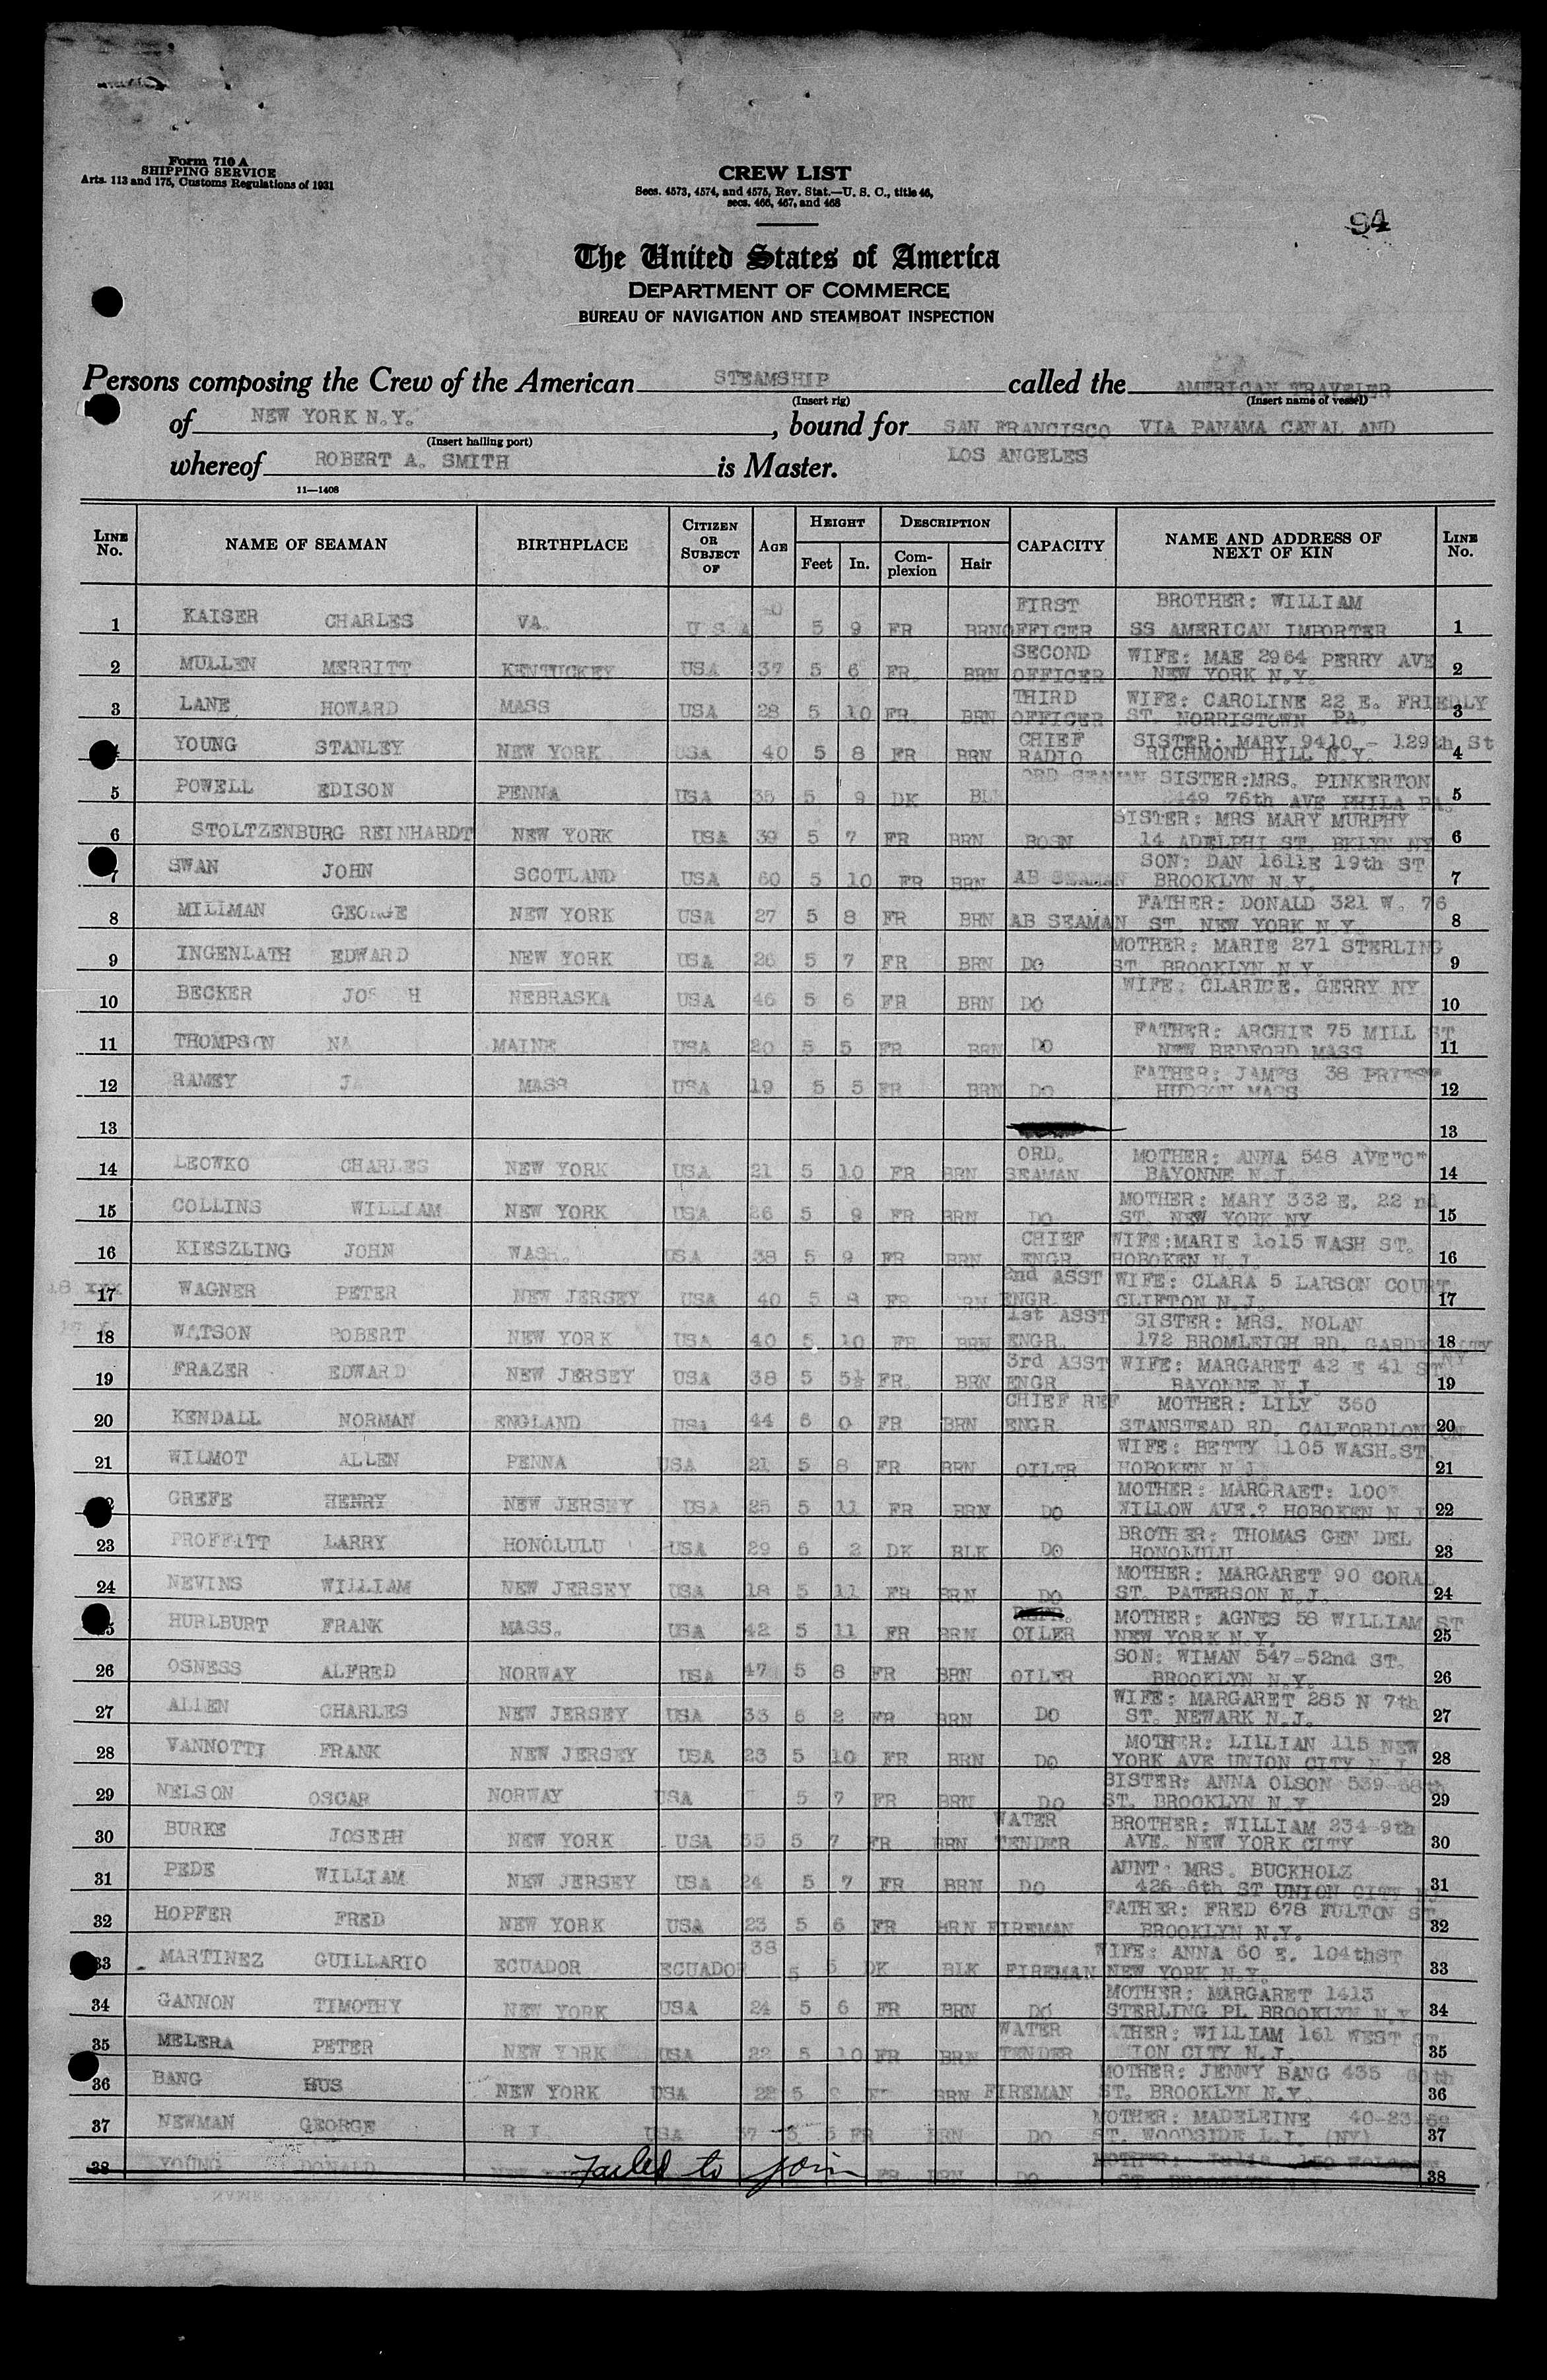 Form 710 A
SHIPPING SERVICE
Arts. 113 and 175, Customs Regulations of 1931
CREW LIST
Secs. 4573, 4574, and 4575, Rev. Stat.—U. S. C., title 46,
secs. 466, 467, and 468
94
The United States of America
DEPARTMENT OF COMMERCE
BUREAU OF NAVIGATION AND STEAMBOAT INSPECTION
Persons composing the Crew of the American STEAMSHIP called the AMERICAN TRAVELER
(Insert rig) (Insert name of vessel)
of NEW YORK N.Y. , bound for SAN FRANCISCO VIA PANAMA CANAL AND
(Insert hailing port)
whereof ROBERT A. SMITH is Master. LOS ANGELES
11—1408
LINE No. NAME OF SEAMAN BIRTHPLACE CITIZEN OR SUBJECT OF AGE HEIGHT Feet In. DESCRIPTION Complexion Hair CAPACITY NAME AND ADDRESS OF NEXT OF KIN LINE No.
1 KAISER CHARLES VA. U S A 5 9 FR BRN FIRST OFFICER BROTHER: WILLIAM SS AMERICAN IMPORTER 1
2 MULLEN MERRITT KENTUCKEY USA 37 5 6 FR. BRN SECOND OFFICER WIFE: MAE 2964 PERRY AVE NEW YORK N.Y. 2
3 LANE HOWARD MASS USA 28 5 10 FR. BRN THIRD OFFICER WIFE: CAROLINE 22 E. FRIEDLY ST. NORRISTOWN PA. 3
YOUNG STANLEY NEW YORK USA 40 5 8 FR BRN CHIEF RADIO SISTER: MARY 9410 - 129th St RICHMOND HILL N.Y. 4
5 POWELL EDISON PENNA USA 35 5 9 DK BLK ORD SEAMAN SISTER:MRS. PINKERTON 2449 76th AVE PHILA PA. 5
6 STOLTZENBURG REINHARDT NEW YORK USA 39 5 7 FR BRN BOSN SISTER: MRS MARY MURPHY 14 ADELPHI ST. BKLYN NY 6
7 SWAN JOHN SCOTLAND USA 60 5 10 FR BRN AB SEAMAN SON: DAN 1611E 19th ST BROOKLYN N.Y. 7
8 MILLMAN GEORGE NEW YORK USA 27 5 8 FR BRN AB SEAMAN FATHER: DONALD 321 W. 76 ST. NEW YORK N.Y. 8
9 INGENLATH EDWARD NEW YORK USA 26 5 7 FR BRN DO MOTHER: MARIE 271 STERLING ST. BROOKLYN N.Y. 9
10 BECKER JOS H NEBRASKA USA 46 5 6 FR BRN DO WIFE: CLARICE. GERRY NY 10
11 THOMPSON NA MAINE USA 20 5 5 FR BRN DO FATHER: ARCHIE 75 MILL ST NEW BEDFORD MASS 11
12 RAMEY JA MASS USA 19 5 5 FR BRN DO FATHER: JAMES 38 HUDSON MASS 12
13 13
14 LEOWKO CHARLES NEW YORK USA 21 5 10 FR BRN ORD. SEAMAN MOTHER: ANNA 548 AVE"C" BAYONNE N.J. 14
15 COLLINS WILLIAM NEW YORK USA 26 5 9 FR BRN DO MOTHER: MARY 332 E. 22 nd ST. NEW YORK NY 15
16 KIESZLING JOHN WASH. USA 38 5 9 FR BRN CHIEF ENGR. WIFE:MARIE 1015 WASH ST. HOBOKEN N.J. 16
18 xxx 17 WAGNER PETER NEW JERSEY USA 40 5 8 FR BRN 2nd ASST ENGR. WIFE: CLARA 5 LARSON COURT CLIFTON N.J. 17
18 WATSON ROBERT NEW YORK USA 40 5 10 FR BRN 1st ASST ENGR. SISTER: MRS. NOLAN 172 BROMLEIGH RD. GARDEN CITY NY 18
19 FRAZER EDWARD NEW JERSEY USA 38 5 5½ FR. BRN 3rd ASST ENGR WIFE: MARGARET 42 E 41 ST BAYONNE N.J. 19
20 KENDALL NORMAN ENGLAND USA 44 6 0 FR BRN CHIEF REF ENGR. MOTHER: LILY 360 STANSTEAD RD. CALFORDLONDON 20
21 WILMOT ALLEN PENNA USA 21 5 8 FR BRN OILER WIFE: BETTY 1105 WASH.ST HOBOKEN N J. 21
GREFE HENRY NEW JERSEY USA 25 5 11 FR BRN DO MOTHER: MARGRAET: WILLOW AVE.? HOBOKEN N J 22
23 PROFFITT LARRY HONOLULU USA 29 6 2 DK BLK DO BROTHER: THOMAS GEN DEL HONOLULU 23
24 NEVINS WILLIAM NEW JERSEY USA 18 5 11 FR BRN DO MOTHER: MARGARET 90 CORAL ST. PATERSON N.J. 24
HURLBURT FRANK MASS. USA 42 5 11 FR BRN OILER MOTHER: AGNES 58 WILLIAM ST NEW YORK N.Y. 25
26 OSNESS ALFRED NORWAY USA 47 5 8 FR BRN OILER SON: WIMAN 547-52nd ST. BROOKLYN N.Y. 26
27 ALLEN CHARLES NEW JERSEY USA 33 6 2 FR BRN DO WIFE: MARGARET 285 N 7th ST. NEWARK N.J. 27
28 VANNOTTI FRANK NEW JERSEY USA 23 5 10 FR BRN DO MOTHER: LILLIAN 115 NEW YORK AVE UNION CITY N.J. 28
29 NELSON OSCAR NORWAY USA 5 7 FR BRN DO SISTER: ANNA OLSON 539-58th ST. BROOKLYN N.Y. 29
30 BURKE JOSEPH NEW YORK USA 35 5 7 FR BRN WATER TENDER BROTHER: WILLIAM 234-9th AVE. NEW YORK CITY 30
31 PEDE WILLIAM NEW JERSEY USA 24 5 7 FR BRN DO AUNT: MRS. BUCKHOLZ 426 6th ST UNION CITY NJ 31
32 HOPFER FRED NEW YORK USA 23 5 6 FR BRN FIREMAN FATHER: FRED 678 FULTON ST BROOKLYN N.Y. 32
33 MARTINEZ GUILLARIO ECUADOR ECUADOR 38 5 5 DK BLK FIREMAN WIFE: ANNA 60 E. 104thST NEW YORK N.Y. 33
34 GANNON TIMOTHY NEW YORK USA 24 5 6 FR BRN DO MOTHER: MARGARET 1413 STERLING PL BROOKLYN N.Y 34
35 MELERA PETER NEW YORK USA 22 5 10 FR BRN WATER TENDER FATHER: WILLIAM 161 WEST ST. UNION CITY N.J. 35
36 BANG HUS NEW YORK USA 22 5 BRN FIREMAN MOTHER: JENNY BANG 435 60th ST. BROOKLYN N.Y. 36
37 NEWMAN GEORGE R I. USA 37 5 5 FR BRN DO MOTHER: MADELEINE 40-23 69 ST. WOODSIDE L.I. (NY) 37
38 YOUNG DONALD NEW Failed to join FR BRN DO MOTHER: Julia ST. BROOKLYN N.Y. 38